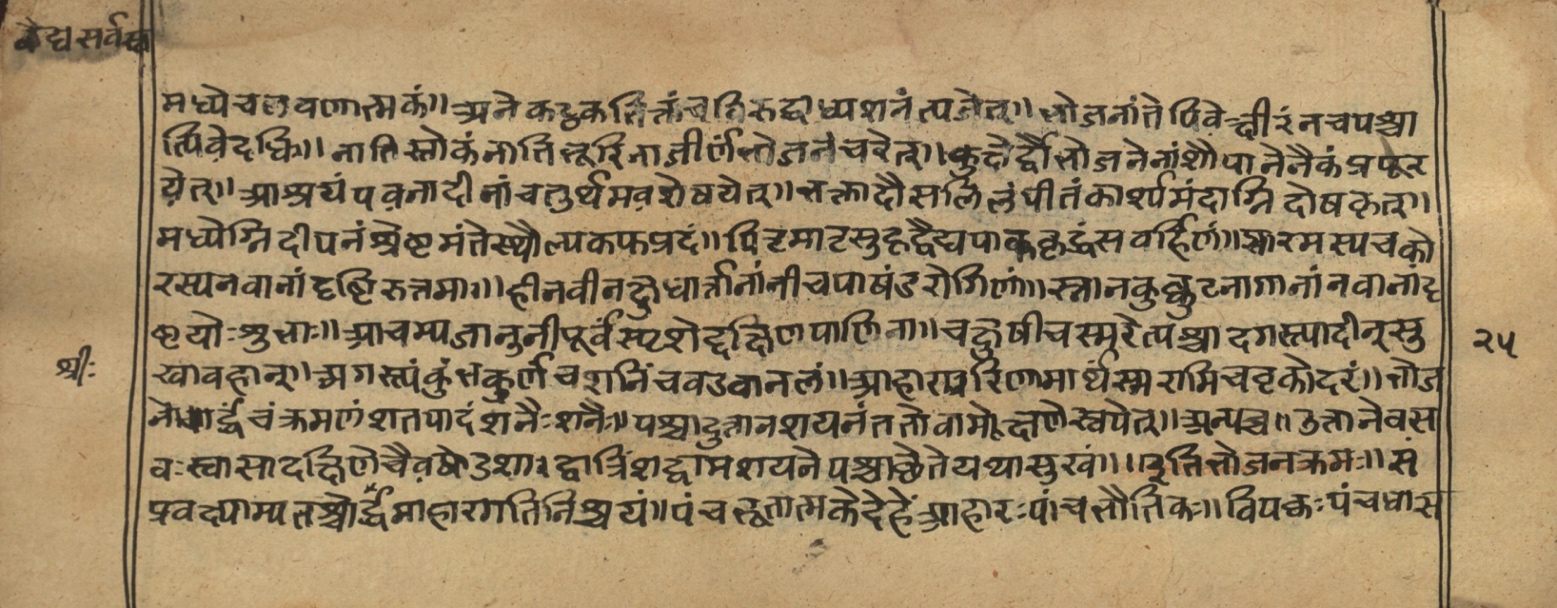 वैद्य सर्वस्व
मध्ये च लवणात्मकं॥ अने कटुकतिक्तं च तिरुद्धाध्यशनं त्यजेत्॥ भोजनांते पिवेत्क्षीरं न च पश्चा
त्पिवेदधि॥ नातिस्तोकं नातिभूरि नाजीर्णे भोजनं चरेत्॥ कुक्षेर्द्वौ भोजनेनांशौ पानेनैकं प्रपूर
येत्॥ आश्रयं पवनादीनां चतुर्थमवशेषयेत्॥ भक्तादौ सलिलं पीतं कार्श्यमंदाग्निदोषकृत्॥
मध्येग्निदीपनं श्रेष्टमंते स्थौल्यकफप्रदं॥ पितृमातृसुहृद्वैद्यपाककृद्धंसवर्हिणं॥ सारमस्य चको
रस्य नवानां दृष्टिरुत्तमा॥ हीनवीनक्षुधार्त्तानां नीचपाषंडरोगिणां॥ स्वानकुक्कुटनागानां नवानां दृ
ष्टयोः शुभाः॥ आचम्य जानुनी पूर्वं स्पृशेद्दक्षिणपाणिना॥ चक्षुषी च स्मरेत्पश्चादगस्त्यादीन् सु
खावहान्॥ अगस्त्यं कुंभकर्णं च शनिं च वडवानलं॥ आहारपरिणामार्थं स्मरामि च वृकोदरं॥ भोज
नोर्द्धं चंक्रमणं शतपादं शनैः शनैः॥ पश्चादुत्तानशयनं ततो वामे क्षणं स्वपेत्॥ अन्यच्च॥ उत्तानेवस
वः स्वासा दक्षिणे चैव षोडशा। द्वात्रिंशद्वामशयने पश्चाच्छेते यथासुखं॥ ॥ इति भोजनक्रमः॥ सं
प्रवक्ष्याम्यतश्चोर्द्धमाहारगतिनिश्चयं॥ पंचभूतात्मके देहे आहारः पांचभौतिकः॥ विपक्तः पंचधा स
श्रीः
२५